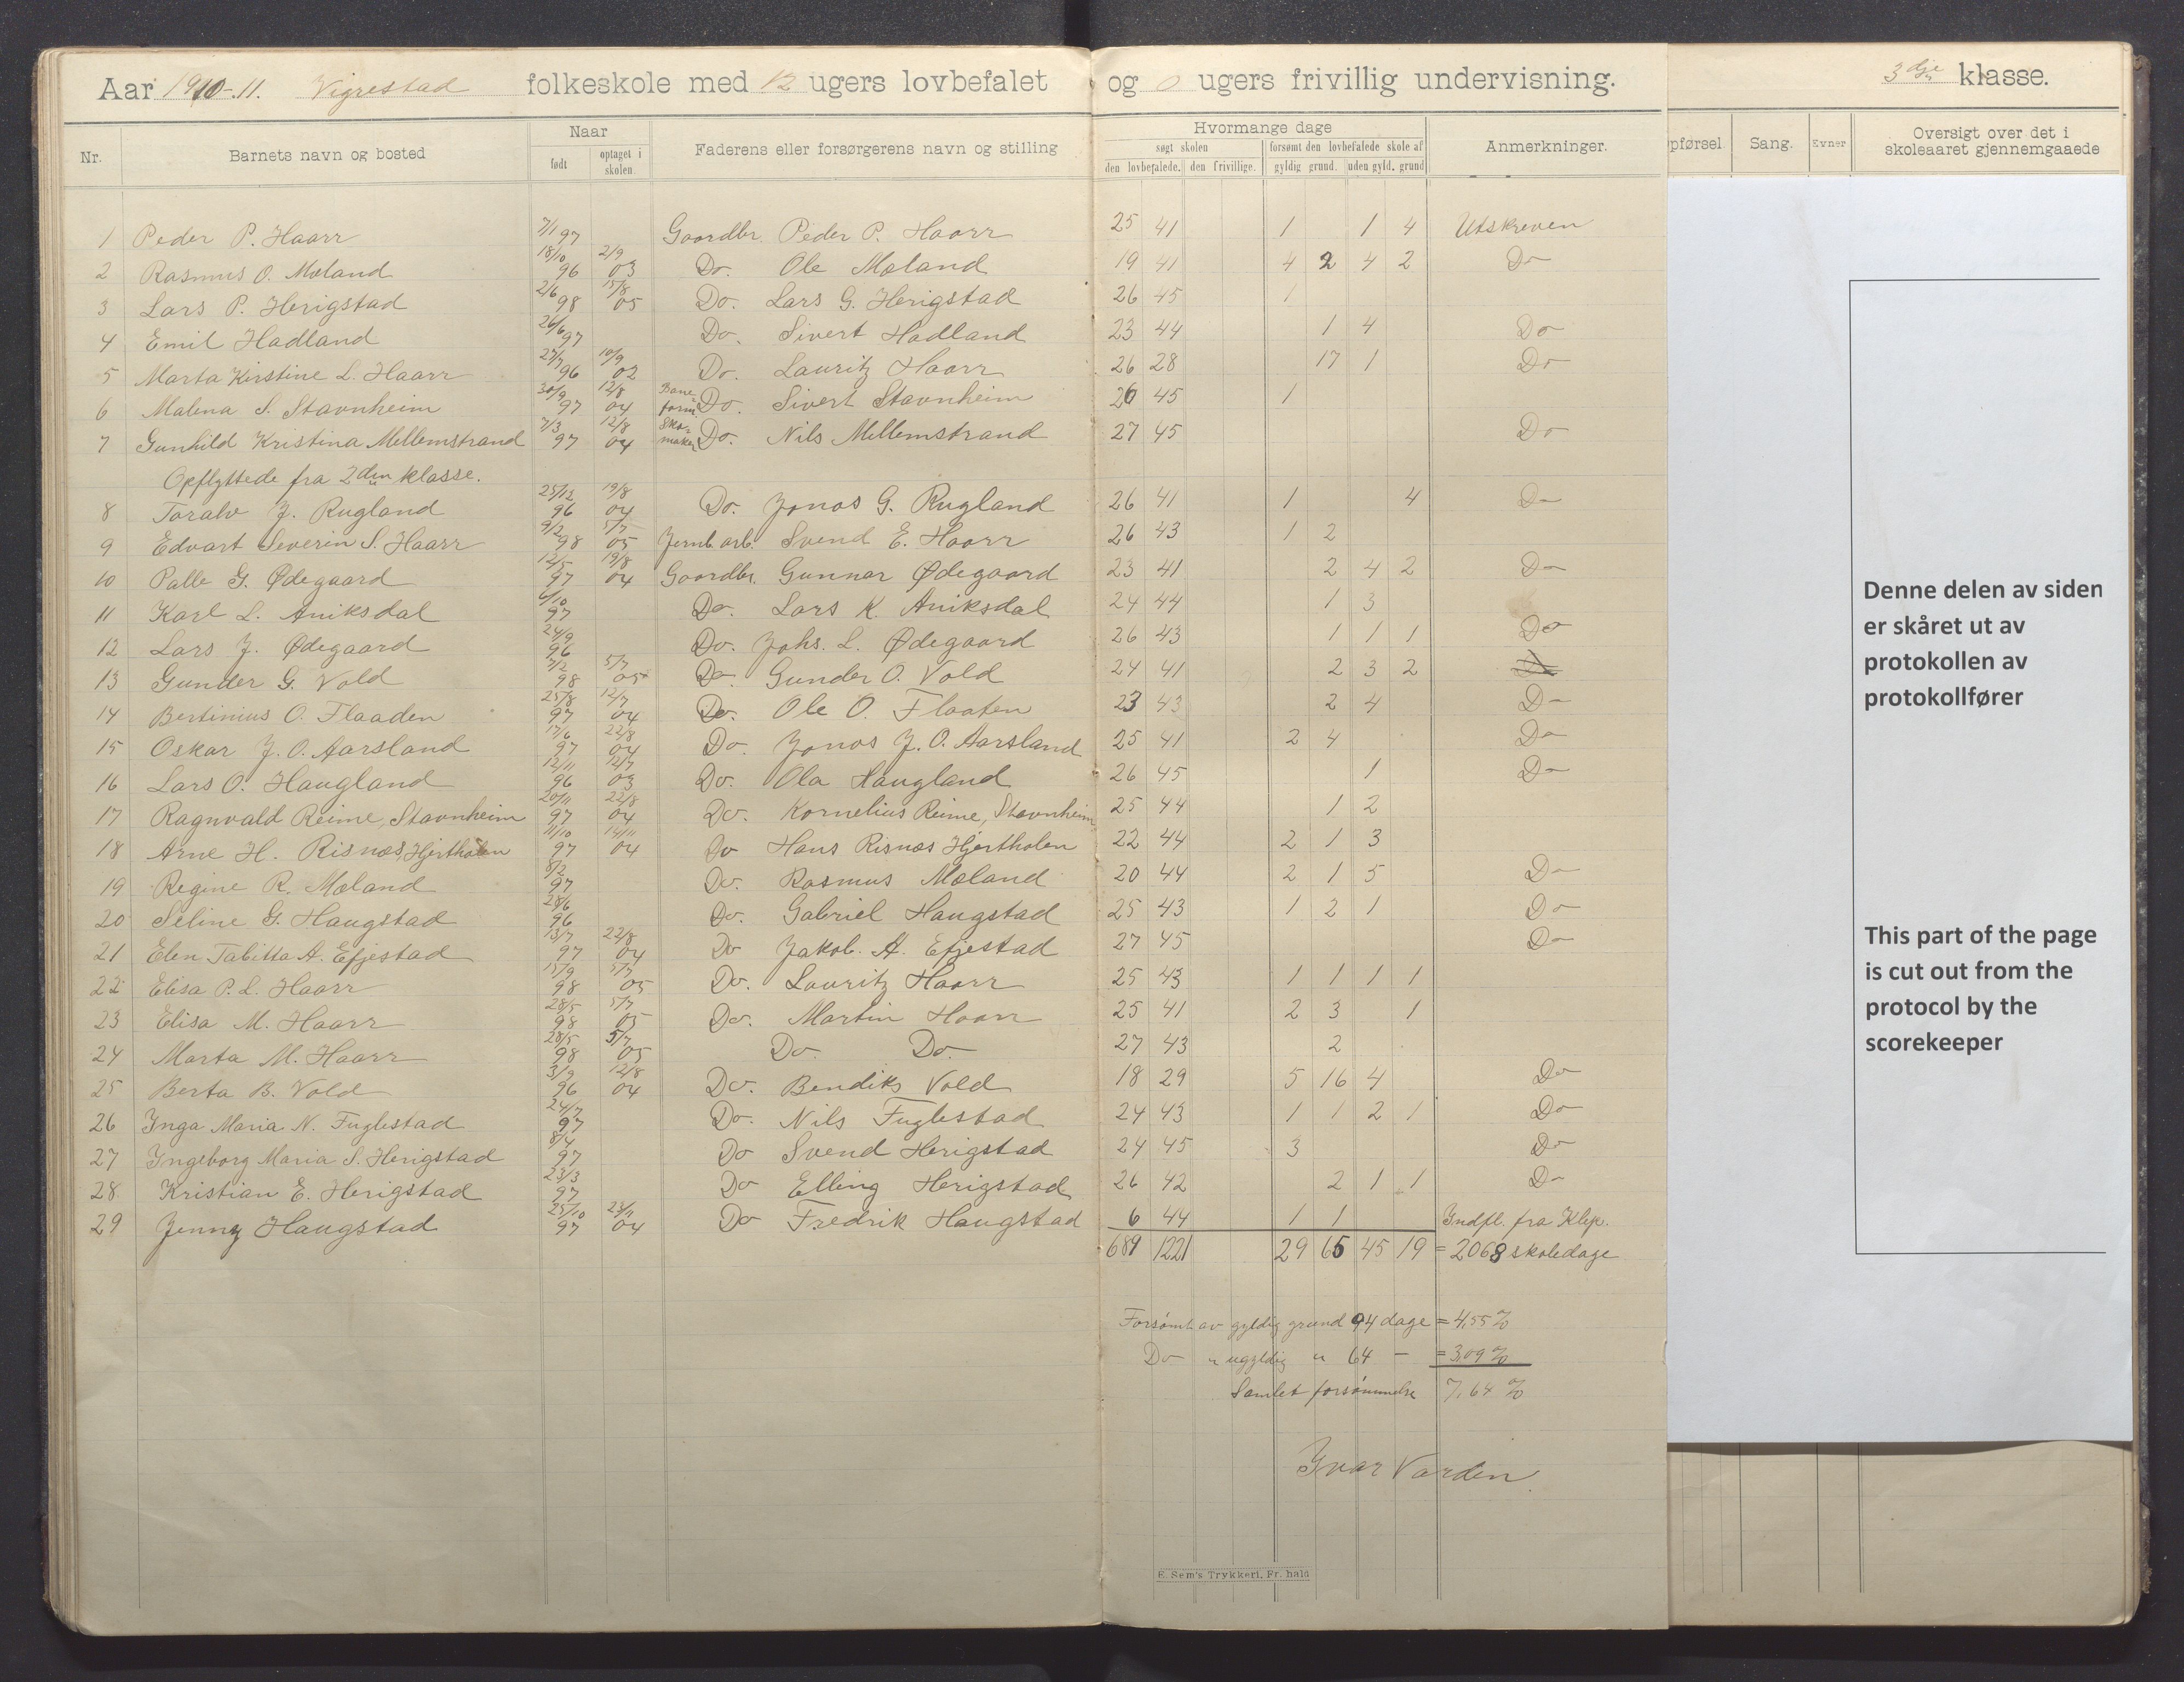 Aar 1910-11. Vigrestad folkeskole med 12 ugers lovbefalet og 0 ugers frivillig undervisning. 3dje klasse.
Nr. Barnets navn og bosted Naar født optaget i skolen. Faderens eller forsørgerens navn og stilling Hvormange dage søgt skolen den lovbefalede. den frivillige. forsømt den lovbefalede skole af gyldig grund. uden gyld. grund Anmerkninger. pførsel. Sang. Evner Oversigt over det i skoleaaret gjennemgaaede
1 Peder P. Haarr 7/1 97 Gaardbr. Peder P. Haarr 25 41 1 1 4 Utskreven
2 Rasmus O. Mæland 18/10 96 2/9 03 Do. Ole Mæland 19 41 4 2 4 2 Do
3 Lars P. Herigstad 2/6 98 15/8 05 Do. Lars G. Herigstad 26 45 1
4 Emil Hadland 26/6 97 Do. Sivert Hadland 23 44 1 4 Do
5 Marta Kirstine L. Haarr 27/7 96 10/9 02 Do. Lauritz Haarr 26 28 17 1 Do
6 Malena S. Stavnheim 30/9 97 12/8 04 Baneform. Do. Sivert Stavnheim 26 45 1
7 Gunhild Kristina Mellemstrand 7/3 97 12/8 04 Skomaker Do. Nils Mellemstrand 27 45 Do
Opflyttede fra 2den klasse.
8 Toralv J. Rugland 25/12 96 19/8 04 Do. Jonas G. Rugland 26 41 1 4 Do
9 Edvart Severin S. Haarr 9/2 98 5/7 05 Jernb. arb. Svend E. Haarr 26 43 1 2
10 Palle G. Ødegaard 12/5 97 19/8 04 Gaardbr. Gunnar Ødegaard 23 41 2 4 2 Do
11 Karl L. Aniksdal 6/10 97 Do. Lars K. Aniksdal 24 44 1 3
12 Lars J. Ødegaard 24/9 96 Do. Johs. L. Ødegaard 26 43 1 1 1 Do
13 Gunder G. Vold 7/2 98 5/7 05 Do. Gunder O. Vold 24 41 2 3 2 Do
14 Bertinius O. Flaaden 25/8 97 12/7 04 Do. Ole O. Flaaten 23 43 2 4 Do
15 Oskar J. O. Aarsland 17/6 97 22/8 04 Do. Jonas J. O. Aarsland 25 41 2 4 Do
16 Lars O. Haugland 12/11 96 12/7 03 Do. Ola Haugland 26 45 1 Do
17 Ragnvald Reime, Stavnheim 20/11 97 22/8 04 Do. Kornelius Reime, Stavnheim 25 44 1 2
18 Arne H. Risnæs, Hjertholen 11/10 97 14/11 04 Do Hans Risnæs Hjertholen 22 44 2 1 3
19 Regine R. Mæland 8/2 97 Do. Rasmus Mæland 20 44 2 1 5 Do
20 Seline G. Haugstad 28/6 96 Do. Gabriel Haugstad 25 43 1 2 1 Do
21 Elen Tabitta A. Efjestad 13/7 97 22/8 04 Do Jakob. A. Efjestad 27 45 Do
22 Elisa P. L. Haarr 15/9 98 5/7 05 Do. Lauritz Haarr 25 43 1 1 1 1
23 Elisa M. Haarr 28/5 98 5/7 05 Do. Martin Haarr 25 41 2 3 1
24 Marta M. Haarr 28/5 98 5/7 05 Do. Do. 27 43 2
25 Berta B. Vold 3/9 96 12/8 04 Do. Bendiks Vold 18 29 5 16 4 Do
26 Inga Maria N. Fuglestad 24/7 97 Do. Nils Fuglestad 24 43 1 1 2 1 Do
27 Ingeborg Maria S. Herigstad 8/4 97 Do Svend Herigstad 24 45 3 Do
28 Kristian E. Herigstad 23/3 97 Do Elling Herigstad 26 42 2 1 1 Do
29 Jenny Haugstad 25/10 97 04 Do Fredrik Haugstad 6 44 1 1 Indfl. fra Klep.
689 1221 29 65 45 19 = 2068 skoledage
Forsømt av gyldig grund 94 dage = 4,55 %
Do " ugyldig " 64 - = 3,09 %
Samlet forsømmelse 7,64 %
Ivar Varden.
E. Sem's Trykkeri, Fr. hald
Denne delen av siden
er skåret ut av
protokollen av
protokollfører
This part of the page
is cut out from the
protocol by the
scorekeeper